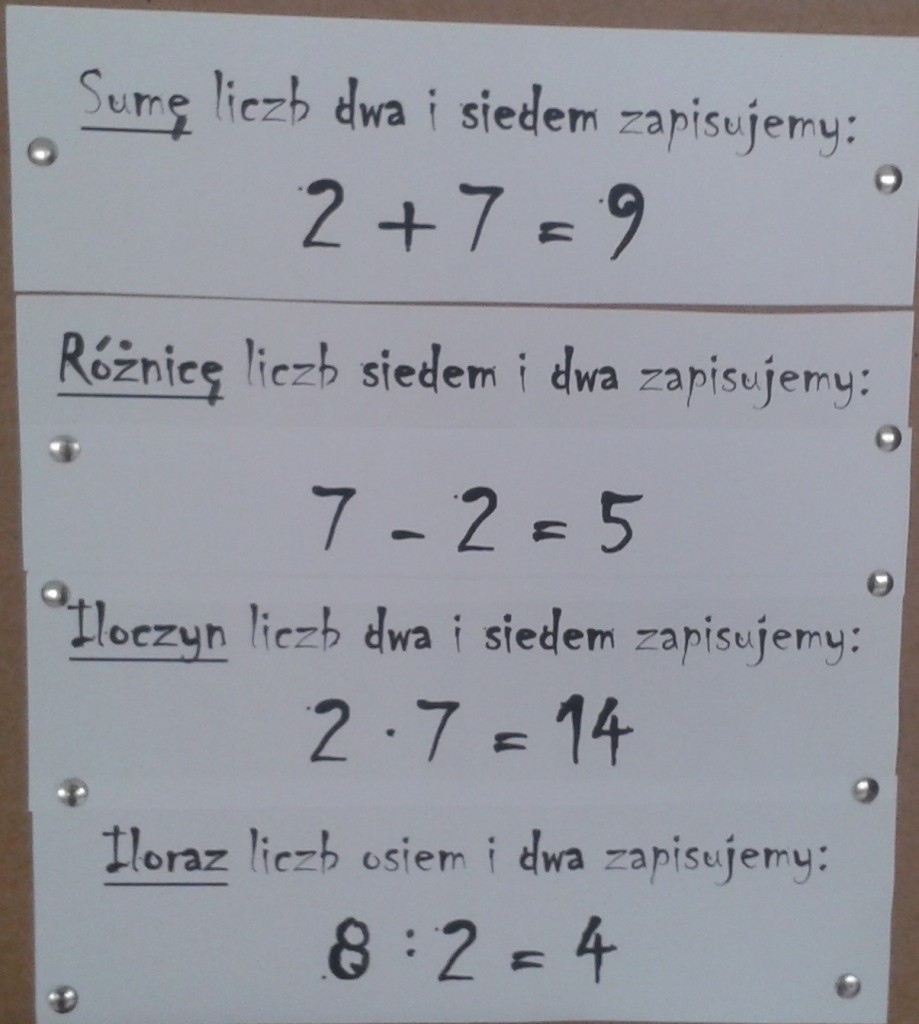 Sumę liczb dwa i siedem zapisujemy:
2 + 7 = 9
Różnicę liczb siedem i dwa zapisujemy:
7 - 2 = 5
Iloczyn liczb dwa i siedem zapisujemy:
2 · 7 = 14
Iloraz liczb osiem i dwa zapisujemy:
8 : 2 = 4